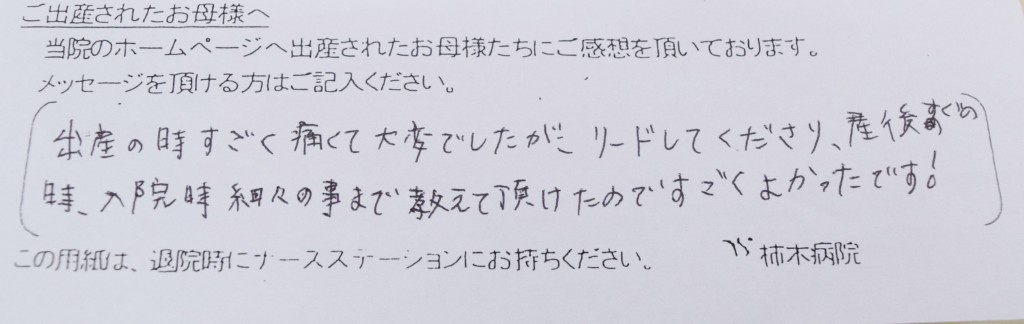 ご出産されたお母様へ
当院のホームページへ出産されたお母様たちにご感想を頂いております。
メッセージを頂ける方はご記入ください。
出産の時すごく痛くて大変でしたが、リードしてくださり、産後すぐの
時、入院時細々の事まで教えて頂けたのですごくよかったです!
この用紙は、退院時にナースステーションにお持ちください。 柿木病院